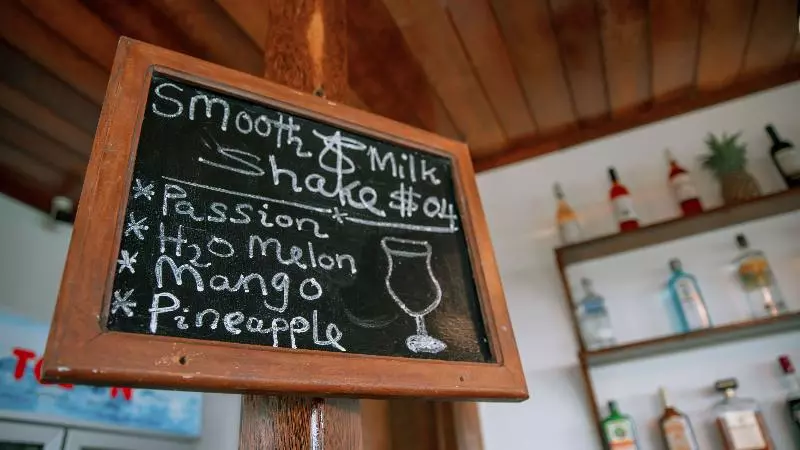 Smooth & Milk
Shake $04
* Passion
* H2O melon
* Mango
* Pineapple